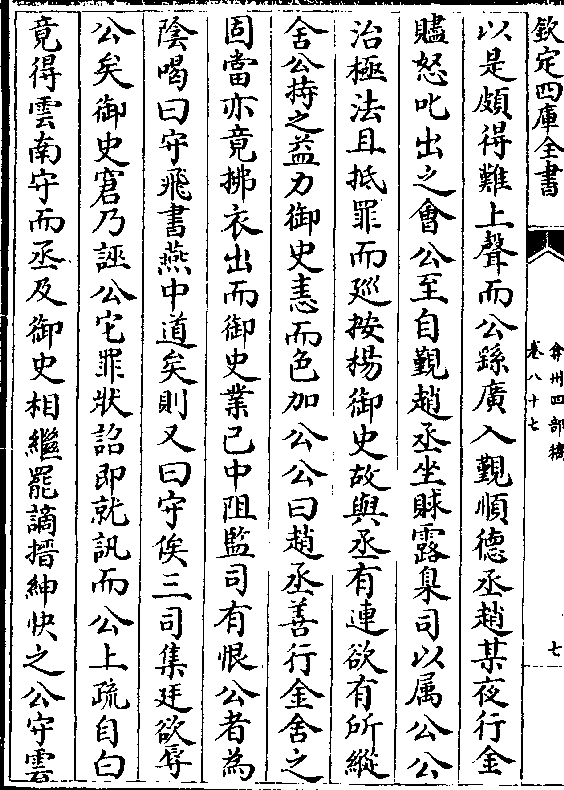 欽定四庫全書
弇州四部稿
卷八十七
七
以是頗得難上聲而公繇廣入覲順德丞趙某夜行金
贐怒叱出之會公至自覲趙丞坐賕露臬司以属公公
治極法且抵罪而廵按楊御史故與丞有連欲有所縱
舍公持之益力御史恚而色加公公曰趙丞善行金舍之
固當亦竟拂衣出而御史業已中阻監司有恨公者為
陰喝曰守飛書燕中道矣則又曰守俟三司集廷欲辱
公矣御史窘乃誣公它罪狀詔即就訊而公上疏自白
竟得雲南守而丞及御史相繼罷謫搢紳快之公守雲